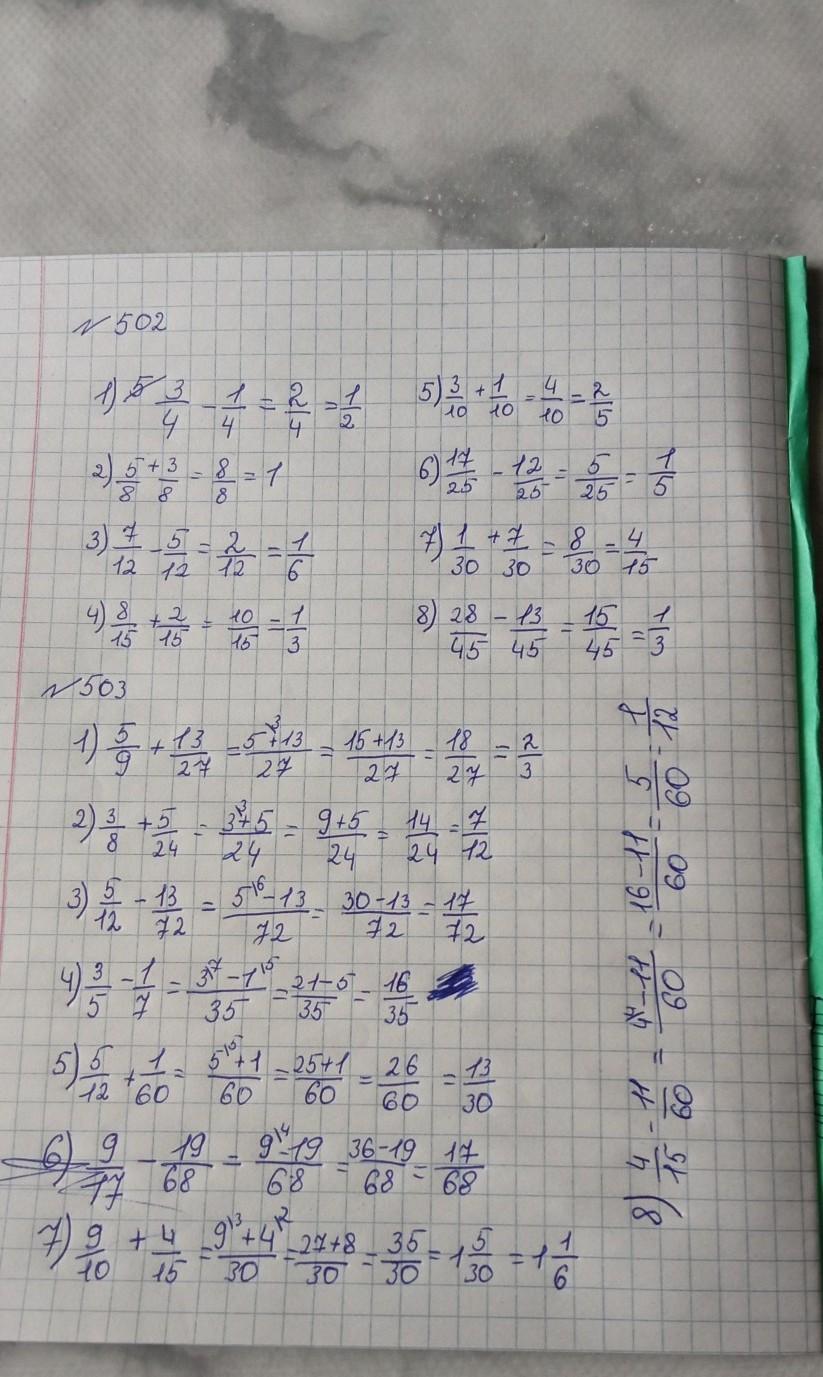 № 502
1) 5 3/4 - 1/4 = 2/4 = 1/2
2) 5/8 + 3/8 = 8/8 = 1
3) 7/12 - 5/12 = 2/12 = 1/6
4) 8/15 + 2/15 = 10/15 = 1/3
5) 3/10 + 1/10 = 4/10 = 2/5
6) 17/25 - 12/25 = 5/25 = 1/5
7) 1/30 + 7/30 = 8/30 = 4/15
8) 28/45 - 13/45 = 15/45 = 1/3
№ 503
1) 5/9 + 13/27 = 5\3 + 13/27 = 15+13/27 = 18/27 = 2/3
2) 3/8 + 5/24 = 3\3 + 5/24 = 9+5/24 = 14/24 = 7/12
3) 5/12 - 13/72 = 5\6 - 13/72 = 30-13/72 = 17/72
4) 3/5 - 1/7 = 3\7 - 1\5/35 = 21-5/35 = 16/35
5) 5/12 + 1/60 = 5\5 + 1/60 = 25+1/60 = 26/60 = 13/30
6) 9/17 - 19/68 = 9\4 - 19/68 = 36-19/68 = 17/68
7) 9/10 + 4/15 = 9\3 + 4\2/30 = 27+8/30 = 35/30 = 1 5/30 = 1 1/6
8) 4/15 - 11/60 = 4\4 - 11/60 = 16-11/60 = 5/60 = 1/12